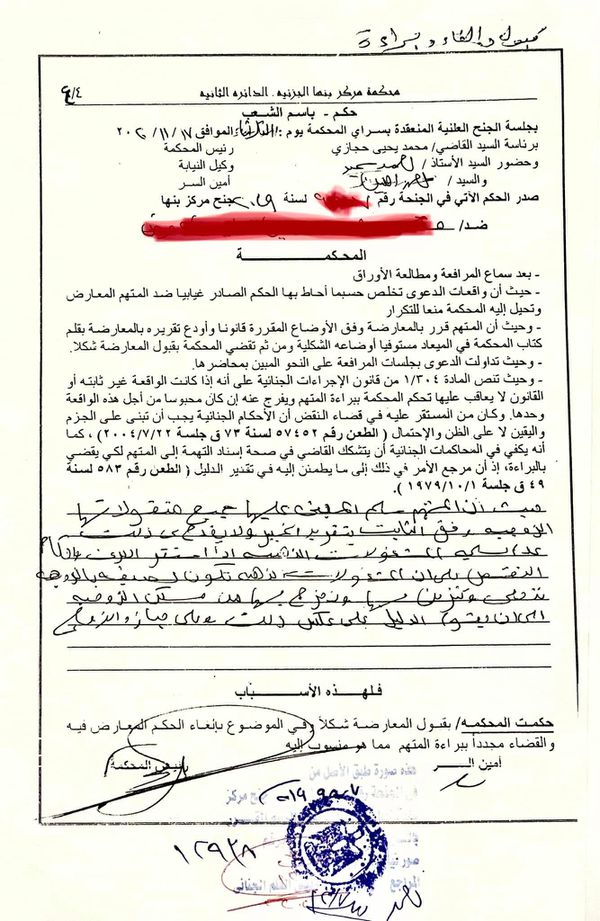 قبول والغاء وبراءة
محكمة مركز بنها الجزئيه - الدائره الثانيه
حكم - باسم الشعب
بجلسة الجنح العلنية المنعقدة بسراي المحكمة يوم : الثلاثاء الموافق ١٧ / ١١ / ٢٠٢٠
برئاسة السيد القاضي/ محمد يحيى حجازي رئيس المحكمة
وحضور السيد الأستاذ / وكيل النيابة
والسيد / أمين السر
صدر الحكم الآتي في الجنحة رقم لسنة ٢٠١٩ جنح مركز بنها
ضد/
المحكمة
- بعد سماع المرافعة ومطالعة الأوراق
- حيث أن واقعات الدعوى تخلص حسبما أحاط بها الحكم الصادر غيابيا ضد المتهم المعارض
وتحيل إليه المحكمة منعا للتكرار
- وحيث أن المتهم قرر بالمعارضة وفق الأوضاع المقررة قانونا وأودع تقريره بالمعارضة بقلم
كتاب المحكمة في الميعاد مستوفيا أوضاعه الشكلية ومن ثم تقضي المحكمة بقبول المعارضة شكلا.
- وحيث تداولت الدعوى بجلسات المرافعة على النحو المبين بمحاضرها.
- وحيث تنص المادة ١/٣٠٤ من قانون الإجراءات الجنائية على أنه إذا كانت الواقعة غير ثابته أو
القانون لا يعاقب عليها تحكم المحكمة ببراءة المتهم ويفرج عنه إن كان محبوسا من أجل هذه الواقعة
وحدها. وكان من المستقر عليه في قضاء النقض أن الأحكام الجنائية يجب أن تبنى على الجزم
واليقين لا على الظن والإحتمال ( الطعن رقم ٥٧٤٥٢ لسنة ٧٣ ق جلسة ٢٠٠٤/٧/٢٢) ، كما
أنه يكفي في المحاكمات الجنائية أن يتشكك القاضي في صحة إسناد التهمة إلى المتهم لكي يقضي
بالبراءة، إذ أن مرجع الأمر في ذلك إلى ما يطمئن إليه في تقدير الدليل ( الطعن رقم ٥٨٣ لسنة
٤٩ ق جلسة ١٩٧٩/١٠/١).
حيث أن المتهم سلم المجني عليها جميع منقولاتها
الزوجية وفق الثابت بتقرير الخبير ولا يقدح في ذلك
عدم تسليمه المنقولات الذهبية إذ استقر
النقض على أن المنقولات الذهبية تكون لصيقة بالزوجة
تتحلى وتتزين بها وتخرج بها من مسكن الزوجية
إلى أن يقوم الدليل على عكس ذلك
فلهذه الأسباب
حكمت المحكمه/ بقبول المعارضة شكلاً وفي الموضوع بإلغاء الحكم المعارض فيه
والقضاء مجدداً ببراءة المتهم مما هو منسوب إليه
أمين السر رئيس المحكمة
هذه صورة طبق الأصل من